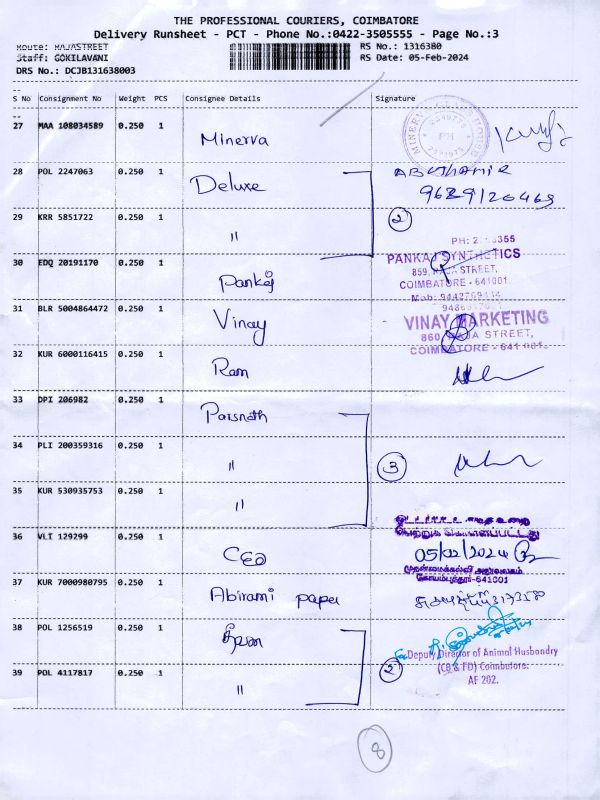 THE PROFESSIONAL COURIERS, COIMBATORE
Delivery Runsheet - PCT - Phone No.:0422-3505555 - Page No.:3
Route: RAJASTREET
Staff: GOKILAVANI
DRS No.: DCJB131638003
RS No.: 1316380
RS Date: 05-Feb-2024
S No Consignment No Weight PCS Consignee Details Signature
27 MAA 108034589 0.250 1 Minerva
28 POL 2247063 0.250 1 Deluxe
29 KRR 5851722 0.250 1 " 2
PH: 2 355
30 EDQ 20191170 0.250 1 Pankaj PANKAJ SYNTHETICS
859, RAJA STREET,
COIMBATORE - 641001.
31 BLR 5004864472 0.250 1 Vinay VINAY MARKETING
860, RAJA STREET,
COIMBATORE - 641 001.
32 KUR 6000116415 0.250 1 Ram
33 DPI 206982 0.250 1 Parsnath
34 PLI 200359316 0.250 1 " 3
35 KUR 530935753 0.250 1 "
36 VLI 129299 0.250 1 CEO
05/02/2024
முதன்மைக்கல்வி அலுவலகம்
கோயம்புத்தூர்-641001
37 KUR 7000980795 0.250 1 Abirami paper
38 POL 1256519 0.250 1
Deputy Director of Animal Husbandry
(CB & FD) Coimbatore.
AF 202.
39 POL 4117817 0.250 1 " 2
8